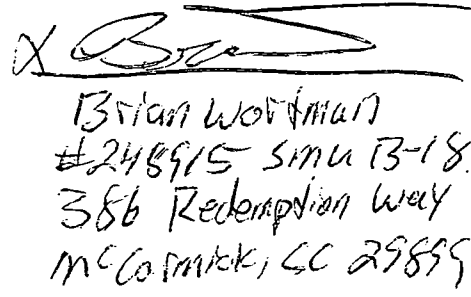 X Bra
Brian Wortman
#248915 SMU B-18
386 Redemption Way
McCormick, SC 29899